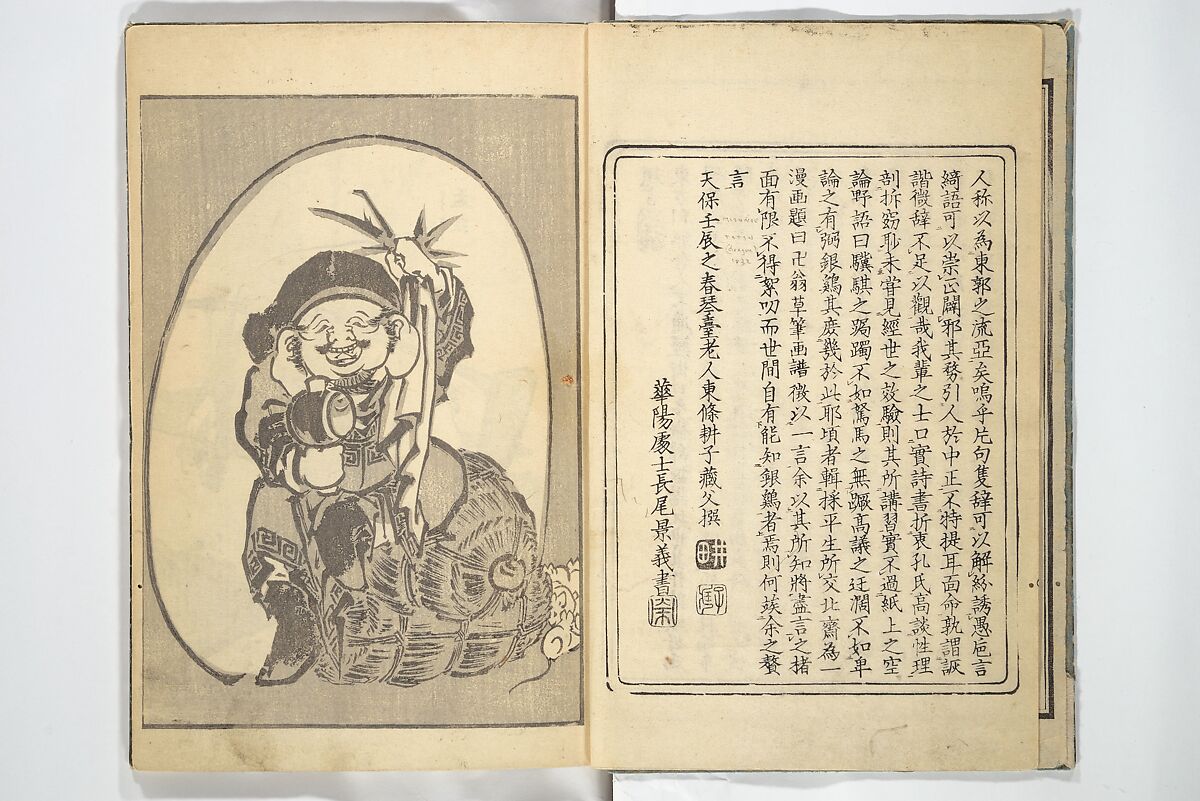 人称以為東郭之流亞矣嗚乎片句隻辞可以解紛誘愚巵言
綺語可以崇正闢邪其務引人於中正不特提耳面命孰謂詼
諧微辞不足以觀哉我輩之士口實詩書折衷孔氏高談性理
剖拆窈眇未甞見經世之效驗則其所講習實不過紙上之空
論野語曰驥騏之跼躅不如駑馬之無蹶高議之迂濶不如卑
論之有弼銀鷄其庶幾於此耶頃者輯採平生所交北齋為一
漫画題曰卍翁草筆画譜徴以一言余以其所知將盡言之楮
面有限不得絮叨而世間自有能知銀鷄者焉則何竢余之贅
言
天保壬辰之春琴臺老人東條耕子藏父撰
耕
華陽處士長尾景義書